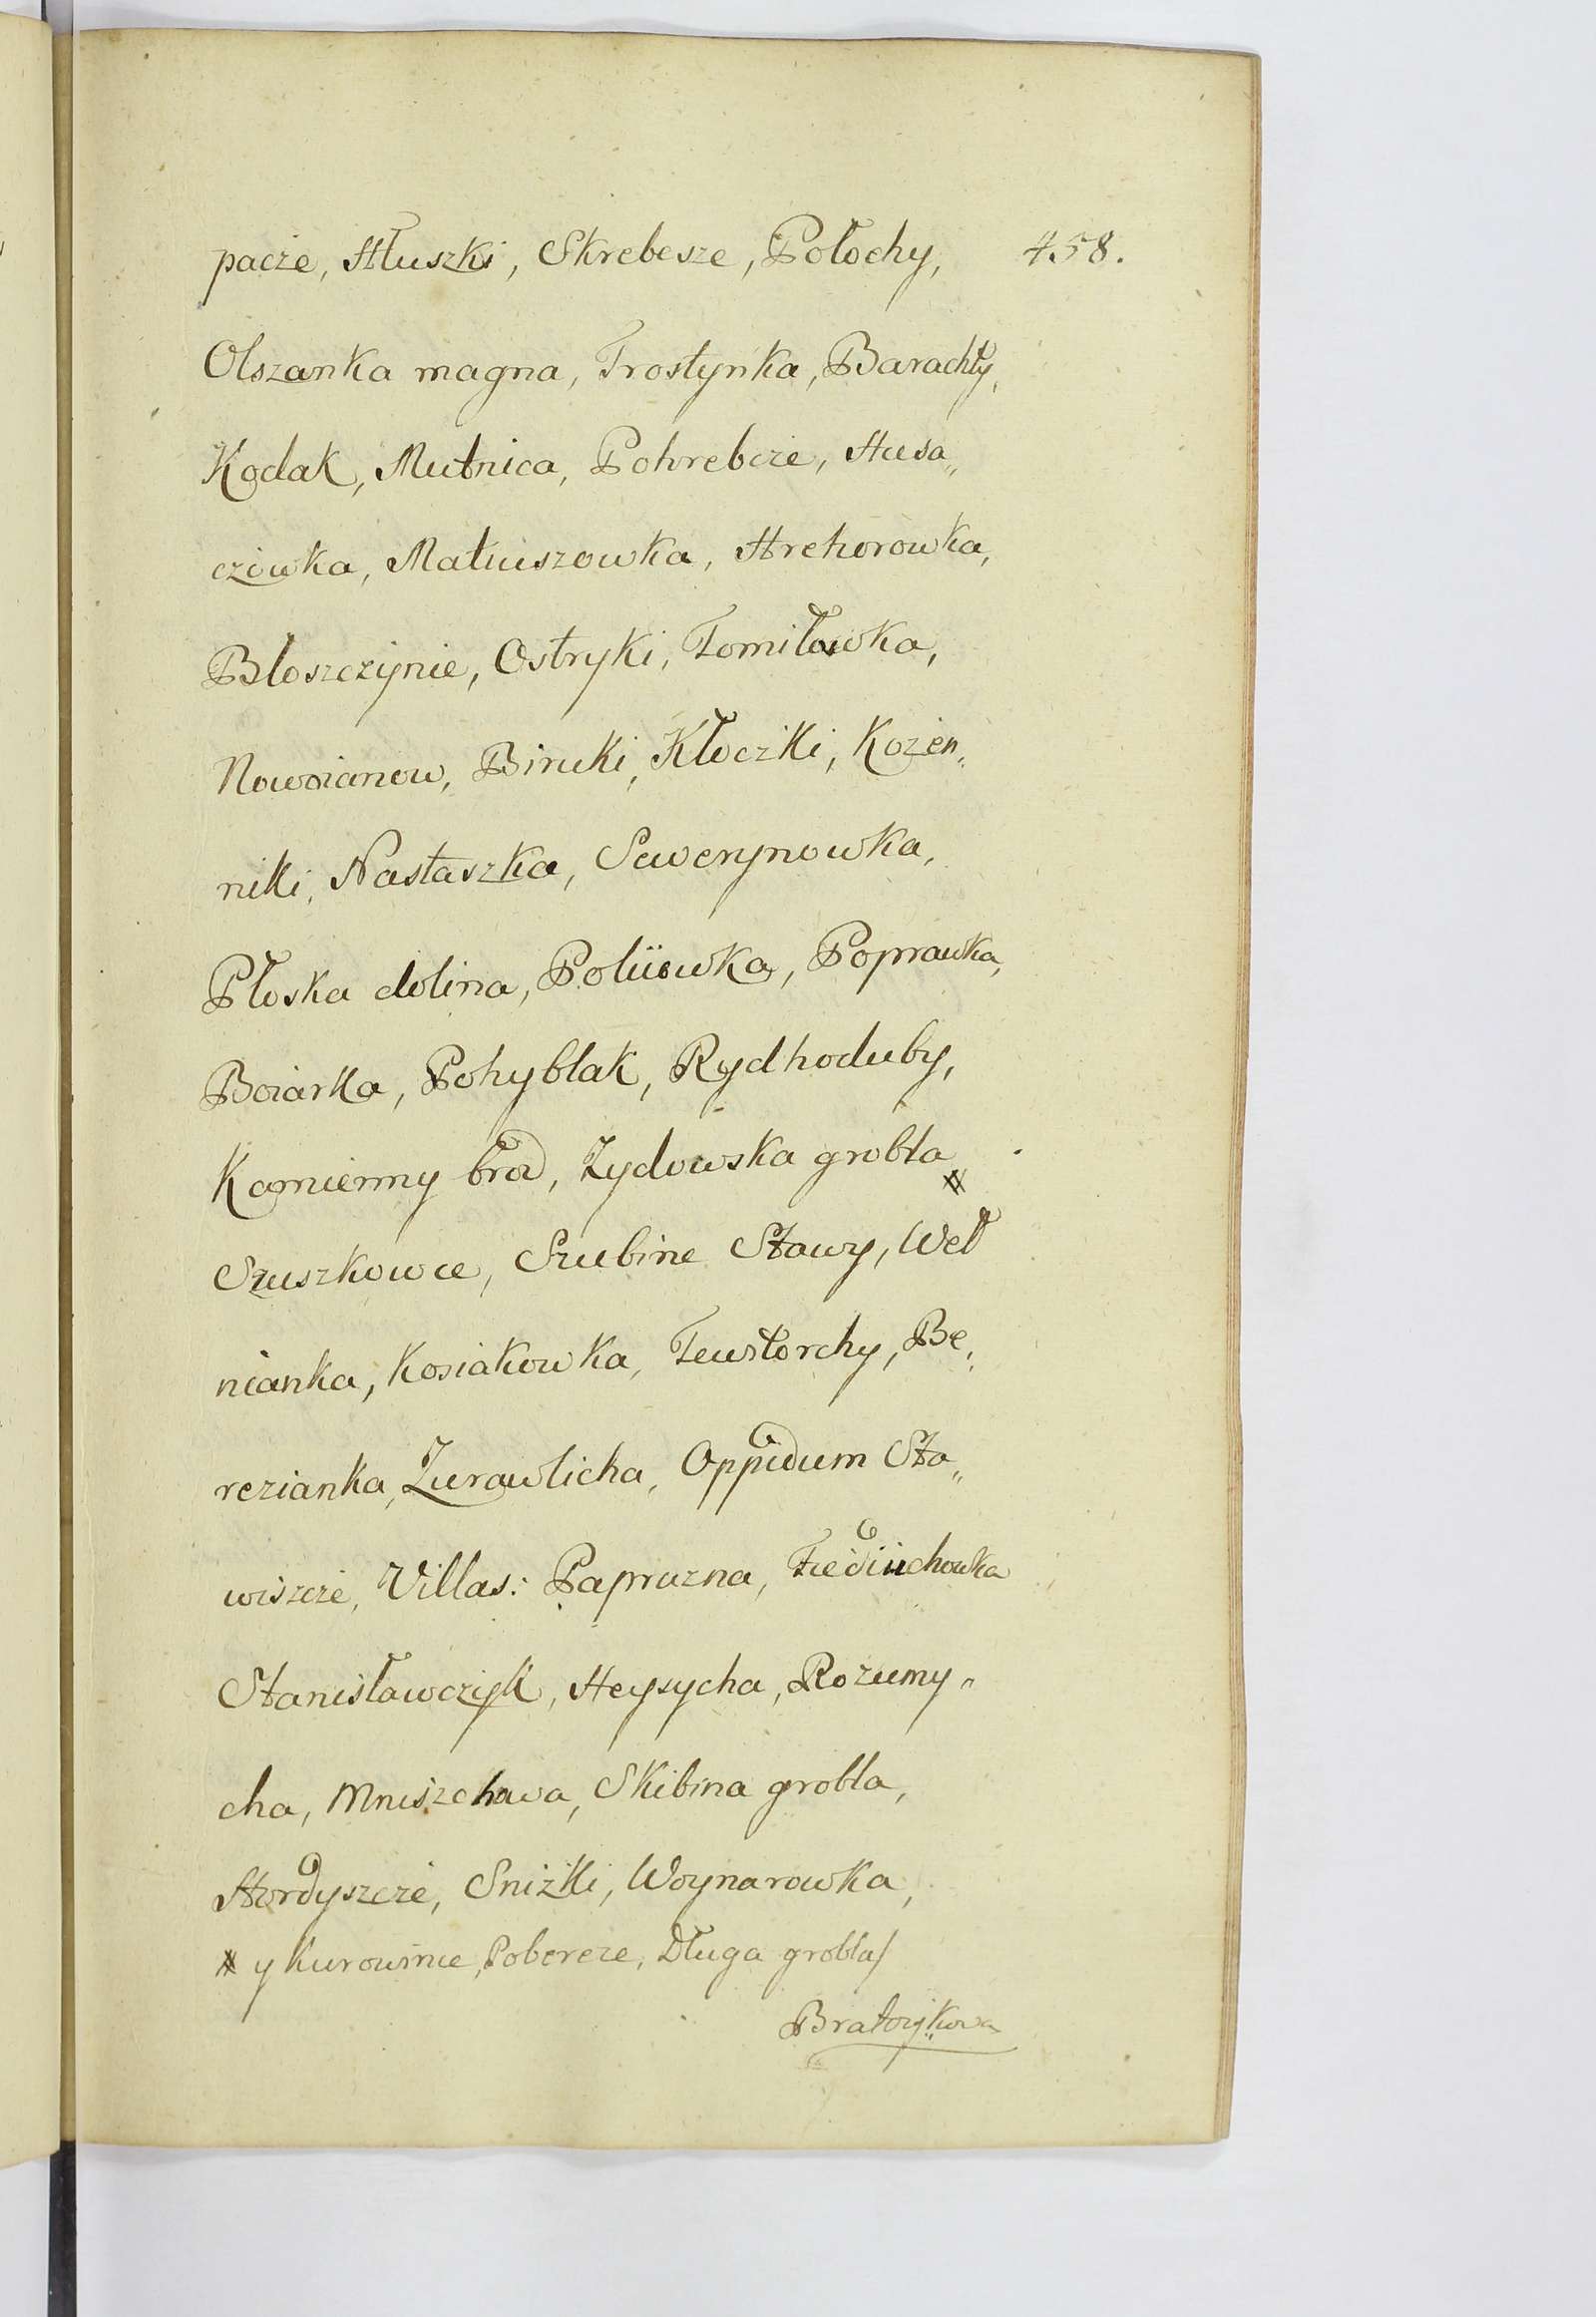 pacze, Hłuszki, Skrebesze, Połochy, 458.
Olszanka magna, Trostynka, Barachty,
Kodak, Mutnica, Pohrebcze, Husa„
czowka, Matiuszowka, Hrehorowka,
Błoszczynie, Ostryki, Tomiłowka,
Nowosianow, Biruki, Kłoczki, Kozen„
niki, Nastaszka, Sewerynowka,
Płoska dolina, Poliiowka, Poprawka,
Boiarka, Pohyblak, Rydhoduby,
Kamienny brod, Zydowska grobla #
Szuszkowce, Szubine Stawy, Weł
nianka, Kosiakowka, Tewstorchy, Be„
rezianka, Zurawlicha, Oppidum Sta„
wiszcze, Villas: Paprazna, Fiediuchowka
Stanisławczyk, Heysycha, Rozumy„
cha, Mniszchawa, Skibina grobla,
Hordyszcze, Sniżki, Woynarowka,
# y Kurowince, Pobereze, Długa grobla/
Bratoijkowa